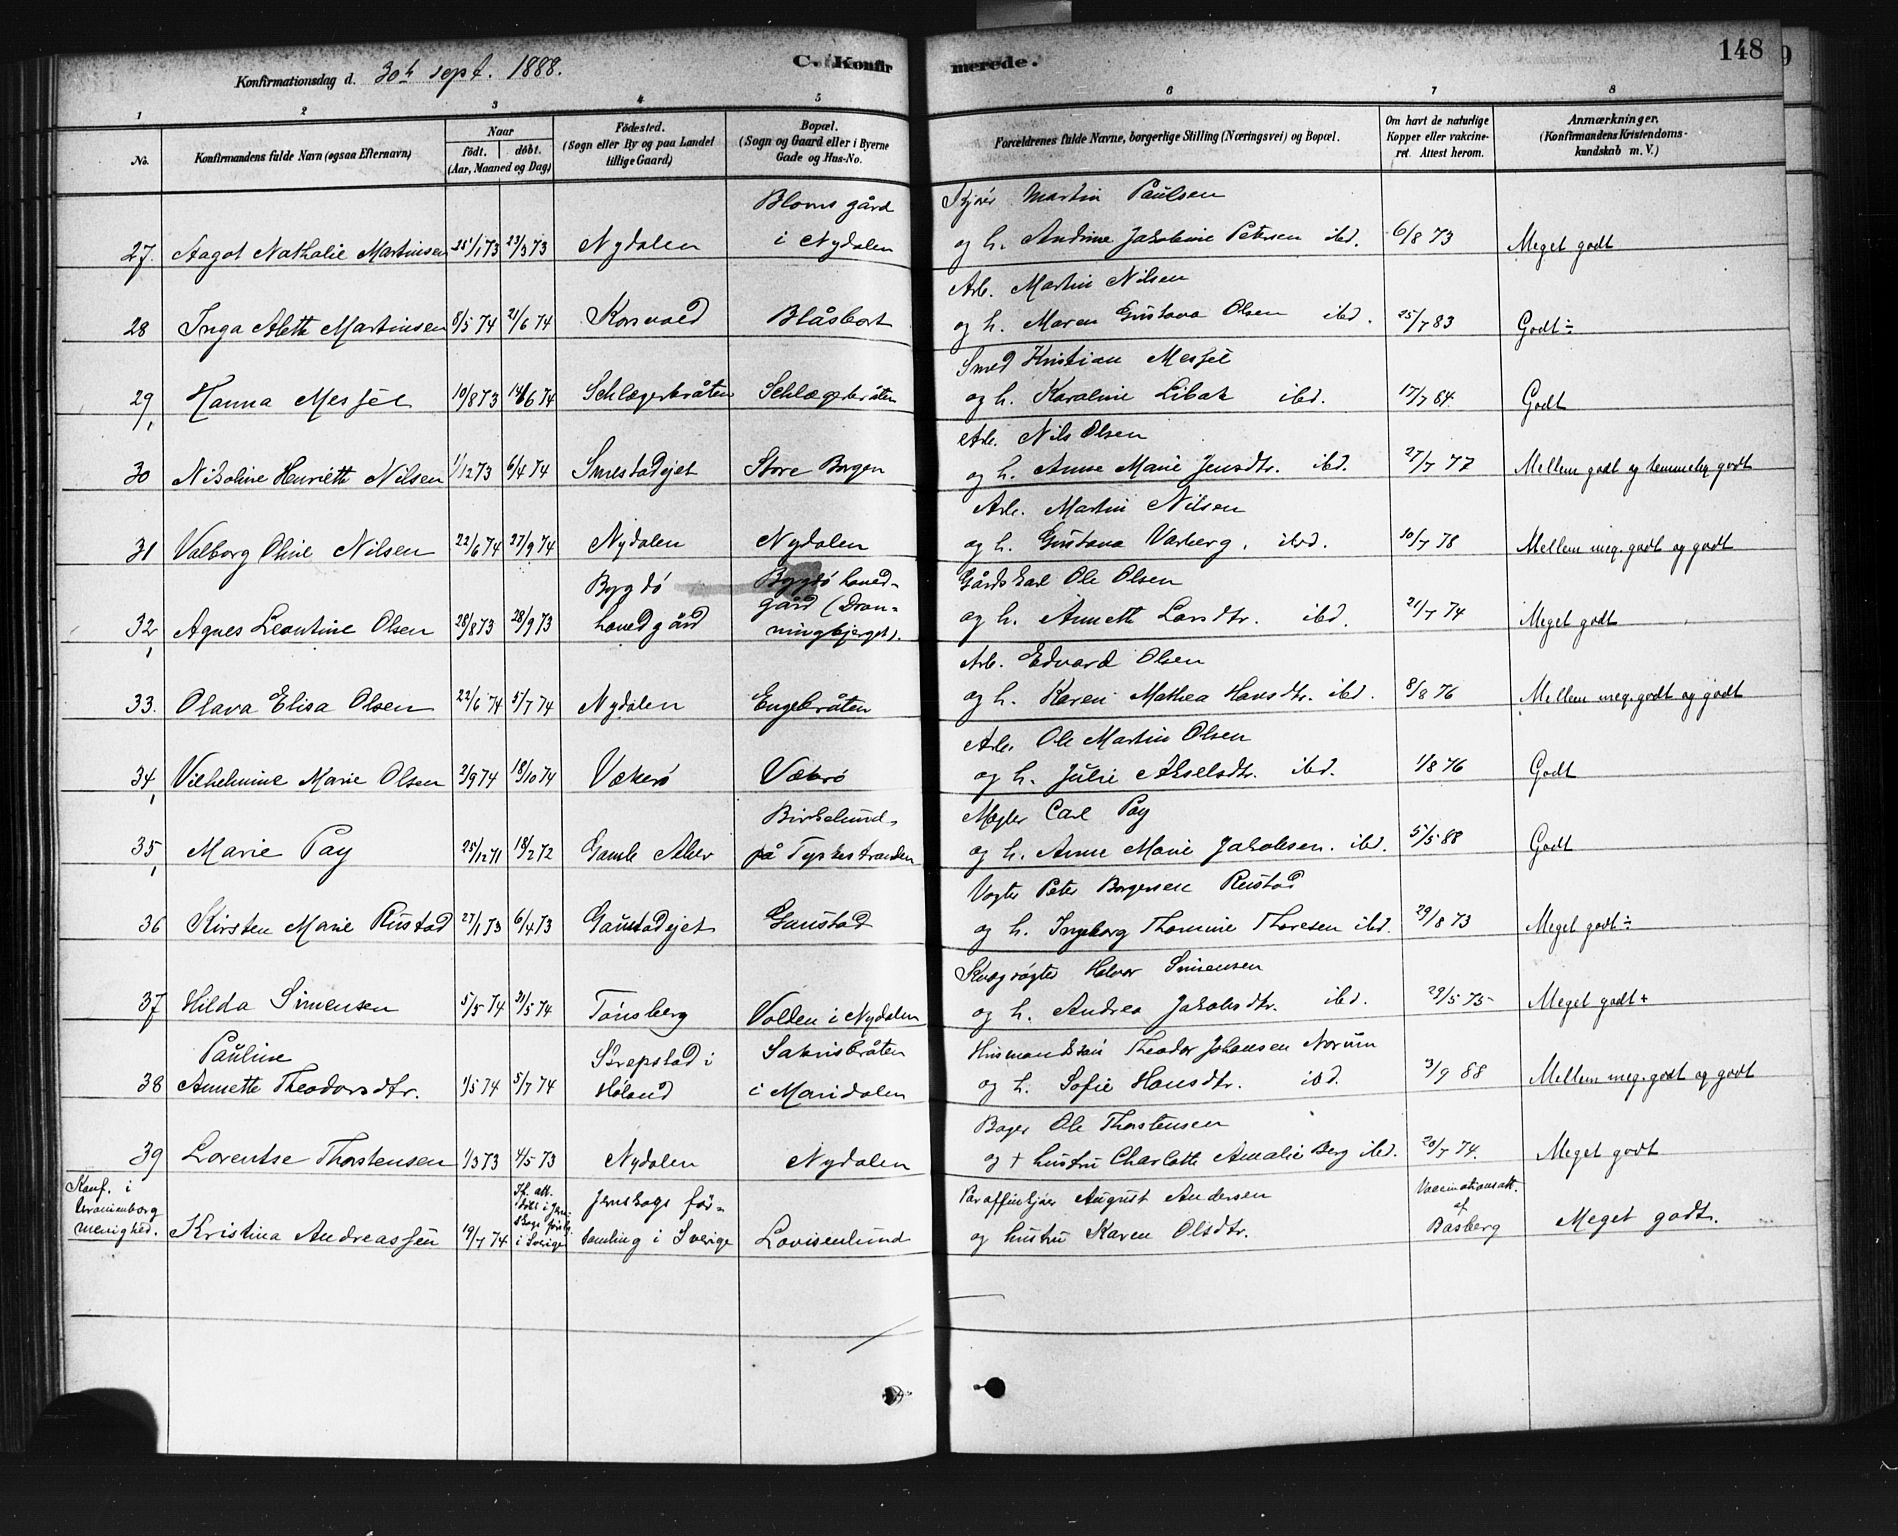 Konfirmationsdag d. 30te sept. 1888.
C. Konfirmerede.
148
9
1 2 3 4 5 6 7 8
No.
Konfirmandens fulde Navn (ogsaa Efternavn)
Naar
født. døbt.
(Aar, Maaned og Dag)
Fødested.
(Sogn eller By og paa Landet
tillige Gaard)
Bopæl.
(Sogn og Gaard eller i Byerne
Gade og Hus-No.
Forældrenes fulde Navne, borgerlige Stilling (Næringsvei) og Bopæl.
Om havt de naturlige
Kopper eller vakcine-
ret. Attest herom.
Anmærkninger.
(Konfirmandens Kristendoms-
kundskab m. V.)
Bloms gård Kjører Martin Paulsen
27. Aagot Nathalie Martinsen 28/1 73 23/3 73 Nydalen i Nydalen og h. Andrine Jakobine Petersen ibd. 6/8 73 Meget godt
Arb. Martin Nilsen
28 Inga Aleth Martinsen 8/5 74 21/6 74 Korsvold Blåsbort og h. Maren Gustava Olsen ibd. 25/7 83 Godt ÷
Smed Kristian Messel
29, Hanna Messel 10/8 73 14/6 74 Schlægerbråten Schlægerbråten og h. Karoline Libak ibd. 17/7 84 Godt
Arb. Nils Olsen
30 Nikoline Henriette Nilsen 1/12 73 6/4 74 Smestadejet Store Borgen og h. Anne Marie Jensdtr. ibd. 27/7 77 Mellem godt og temmelig godt
Arb. Martin Nilsen
31 Valborg Oline Nilsen 22/6 74 27/9 74 Nydalen Nydalen og h. Gustava Varberg. ibd. 10/7 78 Mellem meg. godt og godt
Bygdø Bygdø hoved- Gårdskarl Ole Olsen
gård (Dron-
32, Agnes Leontine Olsen 28/8 73 28/9 73 hovedgård ningbjerget). og h. Annette Larsdtr. ibd. 21/7 74 Meget godt
Arb. Edvard Olsen
33. Olava Elisa Olsen 22/6 74 5/7 74 Nydalen Engebråten og h. Karen Mathea Hansdtr. ibd. 8/8 76 Mellem meg. godt og godt
Arb. Ole Martin Olsen
34, Vilhelmine Marie Olsen 2/9 74 18/10 74 Vækerø Vækerø og h. Julie Akselsdtr. ibd. 1/8 76 Godt
Birkelund Mægler Carl Pay
35, Marie Pay 25/12 71 18/2 72 Gamle Aker på Tyskestranden og h. Anne Marie Jakobsen. ibd. 5/5 88 Godt
Vogter Peter Borgersen Rustad
36 Kirsten Marie Rustad 27/1 73 6/4 73 Gaustadejet Gaustad og h. Ingeborg Thomine Thoresen ibd. 29/8 73 Meget godt ÷
Kvægrøgter Halvor Simensen
37 Hilda Simensen 5/5 74 31/5 74 Tønsberg Volden i Nydalen og h. Andrea Jakobsdtr. ibd. 29/5 75 Meget godt +
Pauline Strepstad i Sakrisbråten Husmandssøn Theodor Johansen Norum
38 Annette Theodorsdtr. 1/5 74 5/7 74 Høland i Maridalen og h. Sofie Hansdtr. ibd. 3/9 88 Mellem meg. godt og godt
Bager Ole Thorstensen
39 Lorentse Thorstensen 1/3 73 4/5 73 Nydalen Nydalen og + hustru Charlotte Amalie Berg ibd. 20/7 74. Meget godt
Konf. i If. att. Jernskogs for- Paraffinkjører August Andersen Vaccinationsatt.
Uranienborg døbt i Jern- af
menighed. Kristina Andreassen 19/7 74 i Sverige samling i Sverige Lovisenlund og hustru Karen Olsdtr. Basberg Meget godt.